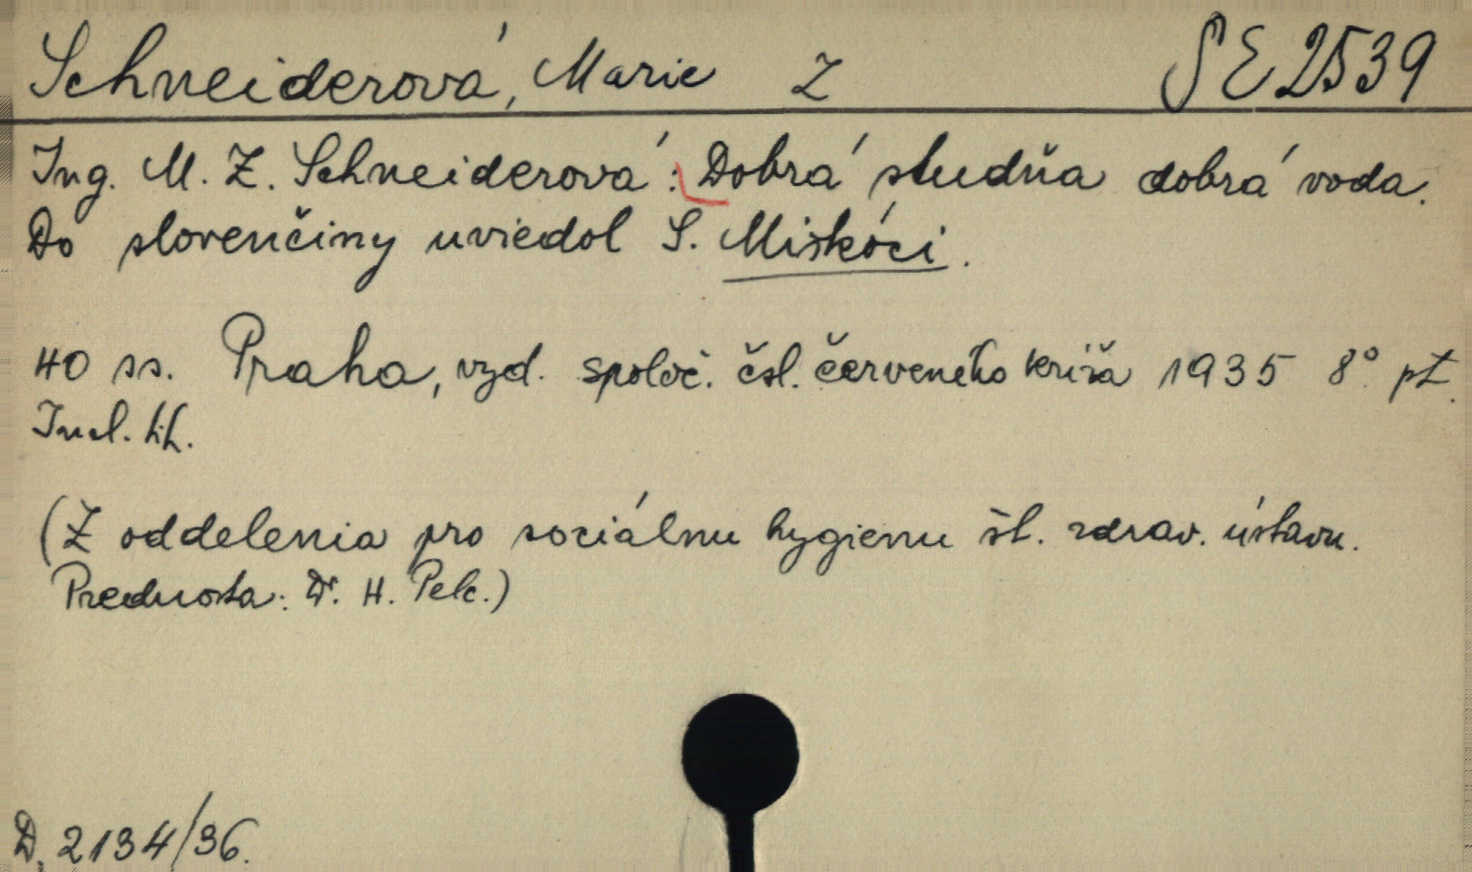 Schneiderová, Marie Z SE 2539
Ing. M. Z. Schneiderová: Dobrá studňa dobrá voda.
Do slovenčiny uviedol S. Miškóci.
40 ss. Praha, vyd. spoloč. čsl. červeného kríža 1935 8° pt.
Incl. tit.
(Z oddelenia pro sociálnu hygienu št. zdrav. ústavu.
Prednosta: Dr. H. Pelc.)
D. 2134/36.